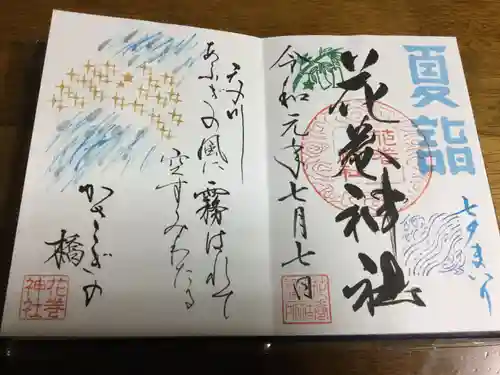 夏詣
花巻神社
七夕まいり
令和元年七月七日
天の川
あふぎの風に
霧はれて
空すみわたる
かささぎの
橋
花巻
神社